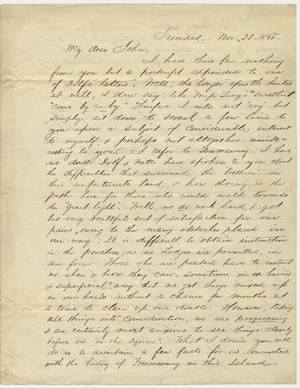 Trinidad. Nov. 28. 1865
My dear John,
I have thus far nothing
from you but a postscript appended to one
of Dolf's letters. Well, the longer epistle
will, I dare say, like Miss
"come by-and-by." Therefore I will not "cry" but
simply sit down to scrawl a few lines to
you upon a subject of considerable interest
to myself & perhaps not altogether
to you. I refer to Freemasonry. I have
no doubt Dolf & Nate have spoken to you about
the difficulties that surround the brethren in
this unfortunate land, & how thorny is the
path here for those who would walk towards
the "great light". Well, we do work hard, & get
but very doubtful sort of satisfaction for our
pains, owing to the many obstacles placed in
our way. It is difficult to obtain instruction
in the
few. Those who are
us when & how they can, sometimes in so hurried
& superficial a way that we get things mixed up
in our heads without a chance for months at
a time to clear up our doubts. However, taking
all things into consideration, we are progressing
& are certainly most anxious to see things clearly
before us "on the square." What I desire you will
do is to ascertain a few facts for us connected
with the history of Freemasonry in this Island,